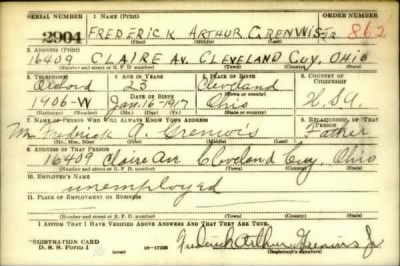 SERIAL NUMBER 1. NAME (Print) ORDER NUMBER
2904 FREDERICK ARTHUR GRENWIS JR 862
(First) (Middle) (Last)
2. ADDRESS (Print)
16409 CLAIRE AV. CLEVELAND CUY, OHIO
(Number and street or R. F. D. number) (Town) (County) (State)
3. TELEPHONE 4. AGE IN YEARS 5. PLACE OF BIRTH 6. COUNTRY OF CITIZENSHIP
23 Cleveland
DATE OF BIRTH (Town or county)
1906-W Jan. 16-1917 Ohio U.S.A.
(Exchange) (Number) (Mo.) (Day) (Yr.) (State or country)
7. NAME OF PERSON WHO WILL ALWAYS KNOW YOUR ADDRESS 8. RELATIONSHIP OF THAT PERSON
Mr. Frederick A. Grenwis Father
(Mr., Mrs., Miss) (First) (Middle) (Last)
9. ADDRESS OF THAT PERSON
16409 Claire Ave Cleveland Cuy, Ohio
(Number and street or R. F. D. number) (Town) (County) (State)
10. EMPLOYER'S NAME
unemployed
11. PLACE OF EMPLOYMENT OR BUSINESS
(Number and street or R. F. D. number) (Town) (County) (State)
I AFFIRM THAT I HAVE VERIFIED ABOVE ANSWERS AND THAT THEY ARE TRUE.
REGISTRATION CARD
D. S. S. Form 1 Frederick Arthur Grenwis Jr.
(Registrant's signature)